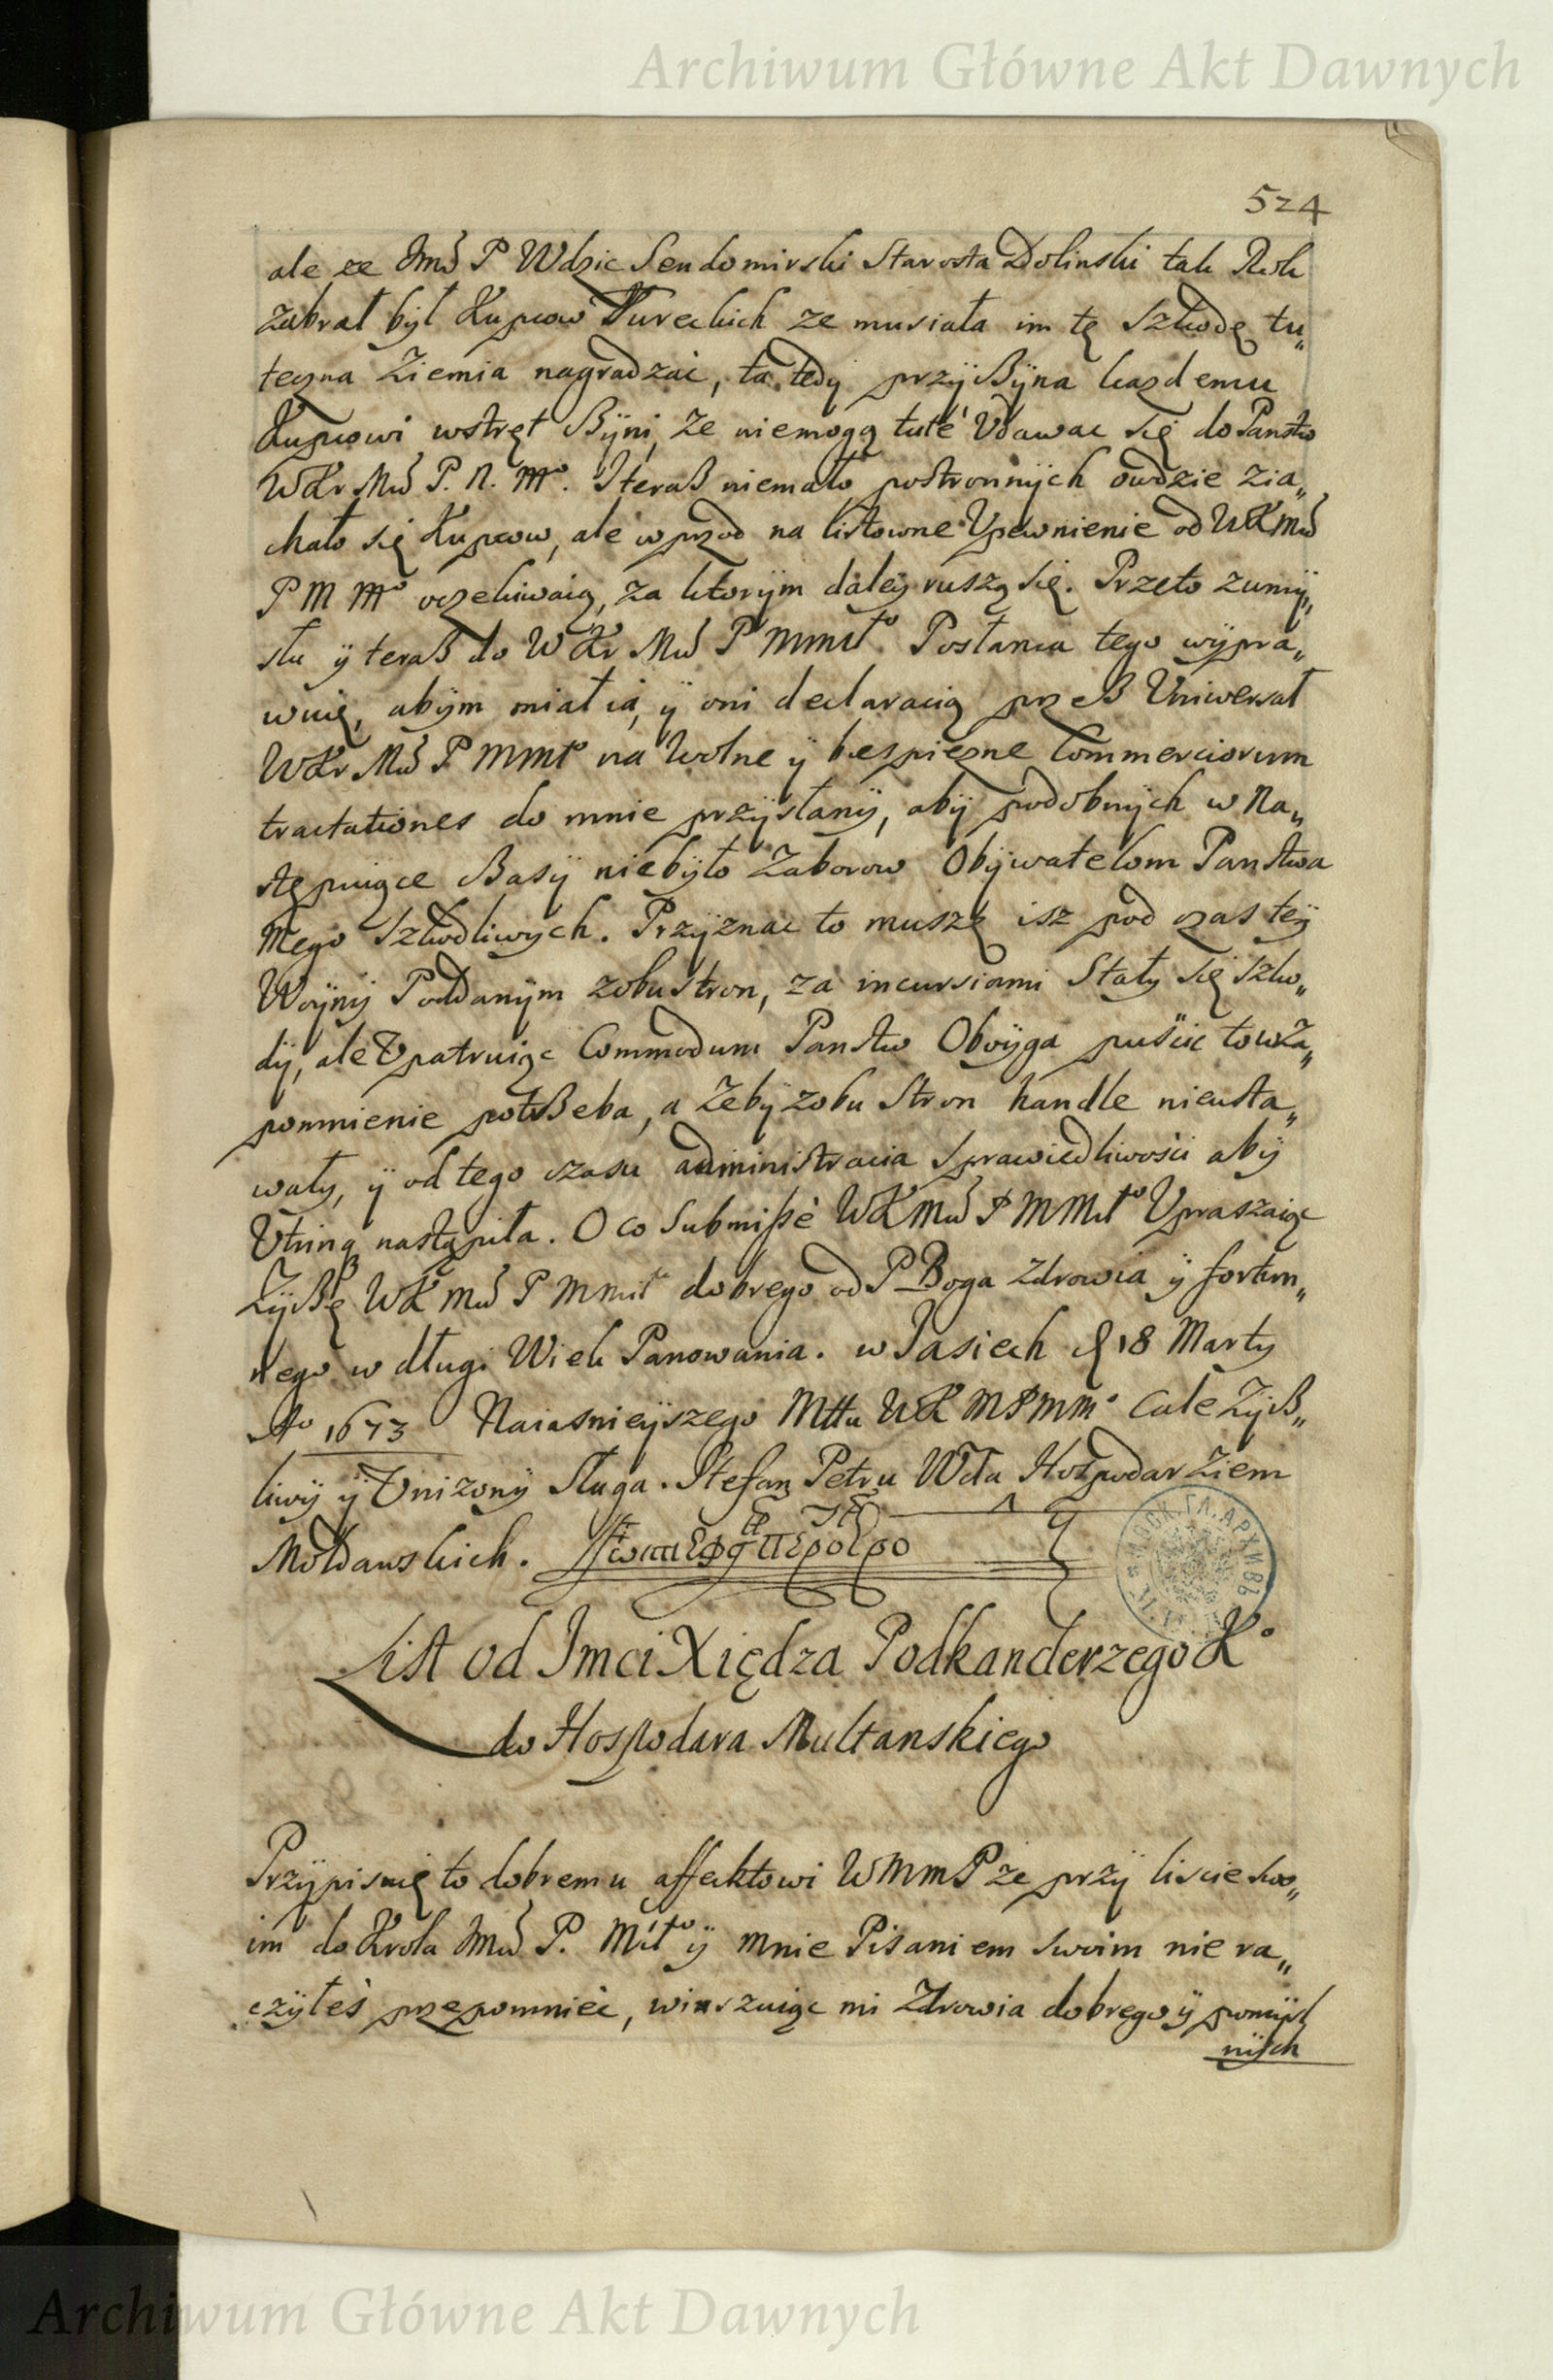 Archiwum Główne Akt Dawnych
524
ale ze Jmć P Wdzic Sendomirski Starosta Dolinski tak Rok
Zabrał był Kupcow Tureckich ze musiała im tę Szkodę tu„
teczna Ziemia nagradzać, ta tedy przÿßÿna kazdemu
Kupcowi wstręt ßÿni, Ze niemogą tutė Udawac się do Panstw
WKr Mći P. N. Mº. I teraß niemało postronnÿch owdzie zia„
chało się Kupcow, ale wprzod na listowne Vpewnienie od WKMći
P M Mº oczekiwaią, za ktorÿm daleÿ ruszą się. Przeto zumÿ„
słu ÿ teraß do WKr Mći P MMłº. Posłanca tego wÿpra„
wuię, abÿm miał ia, ÿ oni declaracią przeß Uniwersał
WKr Mći P MMłº na Wolne ÿ bespieczne Commerciorum
tractationes do mnie przÿsłanÿ, abÿ podobnÿch w Na„
stępuiące ßasÿ niebÿło Zaborow Obÿwatelom Panstwa
Mego Szkodliwych. Przÿznac to muszę isz pod czas teÿ
Woÿnÿ Poddanÿm zobustron, za incursiami Stały się szko„
dÿ, ale Upatruiąc Commodum Panstw Oboÿga puścic to wZa„
pomnienie potrßeba, a Zebÿ zobu Stron handle nieusta„
wały, ÿ od tego czasu administracia Sprawiedliwości abÿ
Utrinq nastąpiła. O co Submißè WKMći P MMłº Upraszaiąc
Zÿßę WKMći P MMłº dobrego od P Boga Zdrowia ÿ fortun„
nego w długi Wiek Panowania. w Jasiech d 18 Marty
Aº 1673 Naiasnieÿszego Mttu WK M P M Mº Cale Zÿß„
liwÿ ÿ Unizonÿ Sługa. Stefan Petru Wda Hospodar Ziem
Mołdawskich.
List od Jmci Xiędza Podkanclerzego Kº
do Hospodara Multanskiego
Przÿpisuię to dobremu affektowi WMmP ze przÿ liscie swo„
im do Krola Jmći P. Młº ÿ mnie Pisaniem swoim nie ra„
czÿłeś przepomnieć, winszuiąc mi Zdrowia dobrego ÿ pomÿśl
nÿch
Archiwum Główne Akt Dawnych